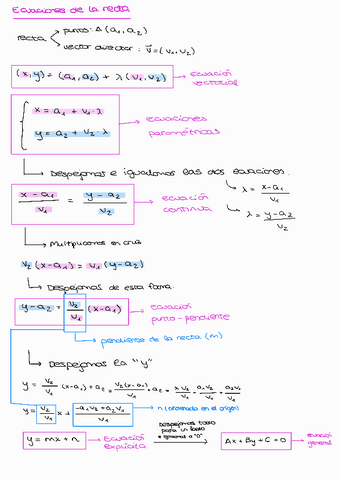 Ecuaciones de la recta
recta
punto: A (a₁, a₂)
vector director: v⃗ = (v₁, v₂)
(x, y) = (a₁, a₂) + λ (v₁, v₂)
ecuación vectorial
x = a₁ + v₁ · λ
y = a₂ + v₂ λ
ecuaciones paramétricas
Despejamos e igualamos las dos ecuaciones.
λ = x-a₁ / v₁
λ = y-a₂ / v₂
x - a₁ / v₁ = y - a₂ / v₂
ecuación continua
Multiplicamos en cruz
v₂ (x-a₁) = v₁ (y-a₂)
Despejamos de esta forma.
y-a₂ = v₂ / v₁ (x-a₁)
ecuación punto-pendiente
pendiente de la recta (m)
Despejamos la "y"
y = v₂ / v₁ (x-a₁) + a₂ =
y = v₂ / v₁ x +
n (ordenada en el origen)
y = mx + n
Ecuación explícita
Despejamos todo
Ax + By + C = 0
ecuación general